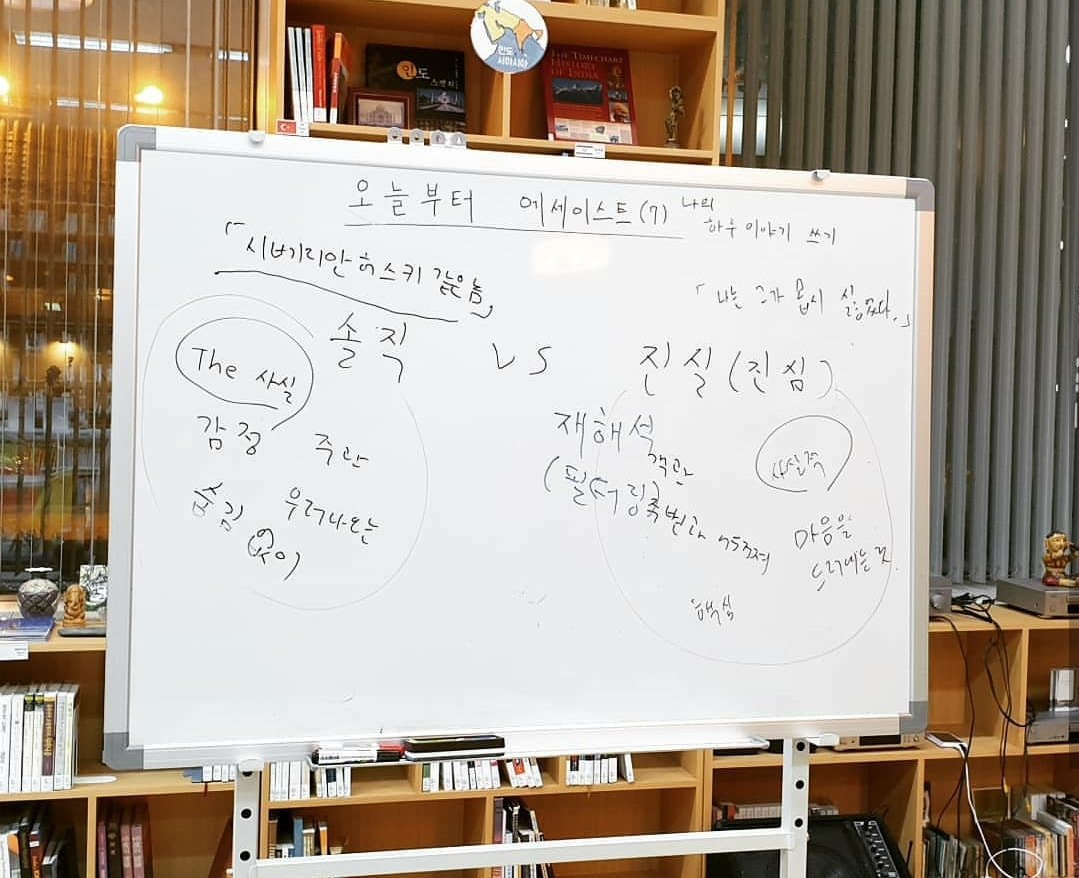 인도
서남아시아
인도
THE TIMECHART
HISTORY
OF INDIA
오늘부터 에세이스트(7) 나의
하루 이야기 쓰기
「시베리안 허스키 같은 놈」
「나는 그가 몹시 싫었다.」
솔직 VS 진실(진심)
The 사실
감정 주관
숨김 우러나오는
(없이)
재해석
객관
(필터링)
사실적
마음을
드러내는 것.
핵심